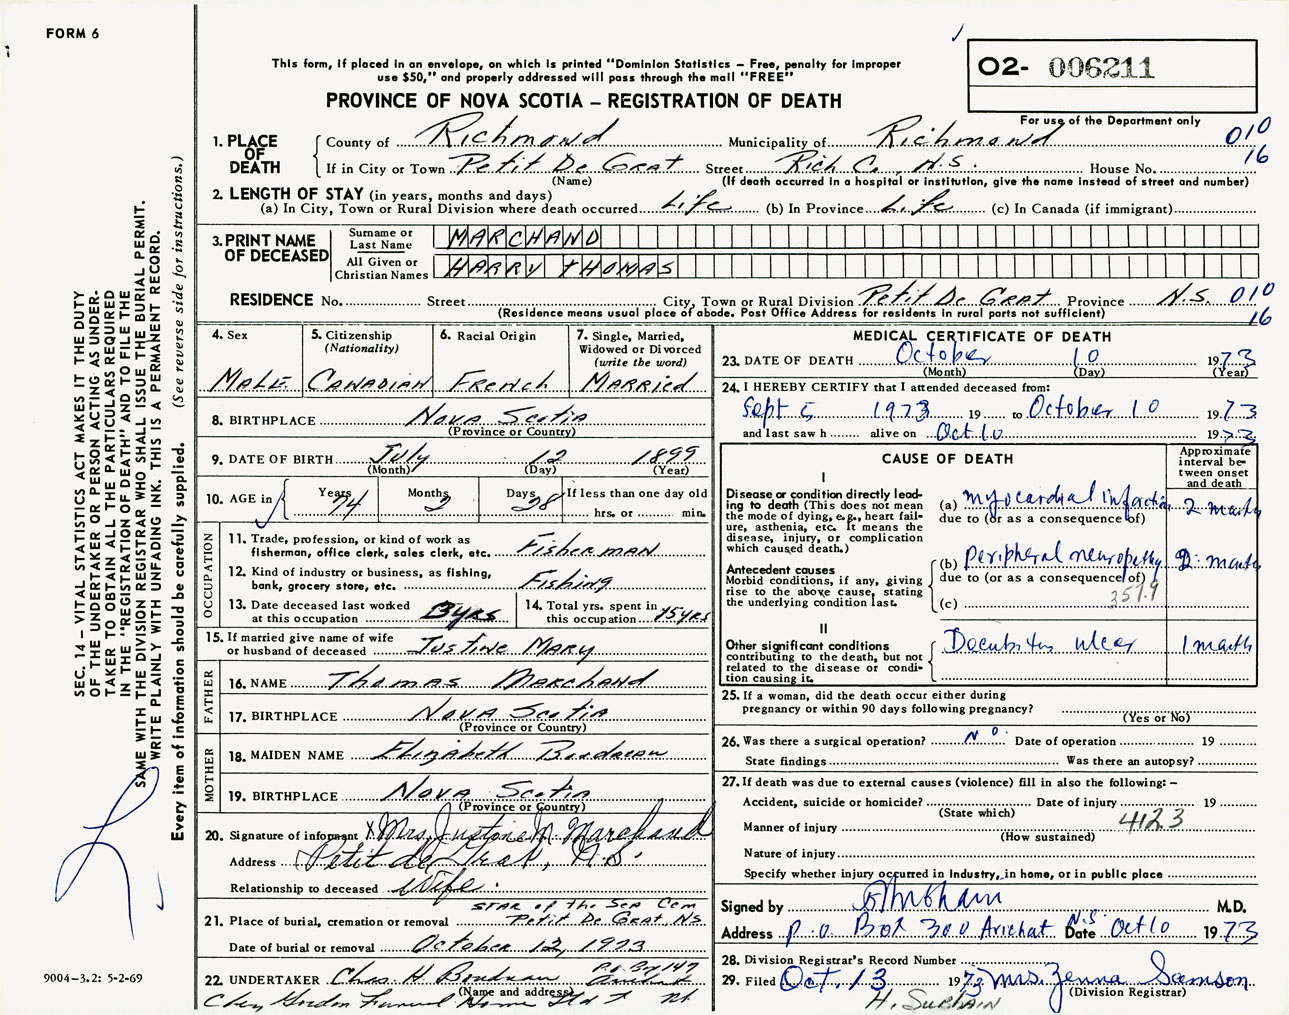 FORM 6
This form, if placed in an envelope, on which is printed "Dominion Statistics – Free, penalty for improper
use $50," and properly addressed will pass through the mail "FREE"
PROVINCE OF NOVA SCOTIA – REGISTRATION OF DEATH
02- 006211
For use of the Department only
1. PLACE OF DEATH County of Richmond Municipality of Richmond 010
If in City or Town Petit De Grat Street Rich C., N.S. House No. 16
(Name) (If death occurred in a hospital or institution, give the name instead of street and number)
2. LENGTH OF STAY (in years, months and days)
(a) In City, Town or Rural Division where death occurred Life (b) In Province Life (c) In Canada (if immigrant)
3. PRINT NAME OF DECEASED
Surname or Last Name MARCHAND
All Given or Christian Names HARRY THOMAS
RESIDENCE No. Street City, Town or Rural Division Petit De Grat Province N.S. 010
(Residence means usual place of abode. Post Office Address for residents in rural parts not sufficient) 16
4. Sex Male
5. Citizenship (Nationality) Canadian
6. Racial Origin French
7. Single, Married, Widowed or Divorced (write the word) Married
8. BIRTHPLACE Nova Scotia
(Province or Country)
9. DATE OF BIRTH July 12 1899
(Month) (Day) (Year)
10. AGE in Years 74 Months 2 Days 28 If less than one day old
hrs. or min.
OCCUPATION
11. Trade, profession, or kind of work as fisherman, office clerk, sales clerk, etc. Fisherman
12. Kind of industry or business, as fishing, bank, grocery store, etc. Fishing
13. Date deceased last worked at this occupation 13yrs
14. Total yrs. spent in this occupation 45yrs
15. If married give name of wife or husband of deceased Justine Mary
FATHER
16. NAME Thomas Marchand
17. BIRTHPLACE Nova Scotia
(Province or Country)
MOTHER
18. MAIDEN NAME Elizabeth Boudreau
19. BIRTHPLACE Nova Scotia
(Province or Country)
20. Signature of informant X Mrs. Justine M. Marchand
Address Petit de Grat, N.S.
Relationship to deceased Wife.
Star of the Sea Cem
21. Place of burial, cremation or removal Petit De Grat N.S.
Date of burial or removal October 12, 1973
22. UNDERTAKER Chas. H. Boudreau P.O. Box 147
(Name and address)
Gordon Funeral Home Ltd
MEDICAL CERTIFICATE OF DEATH
23. DATE OF DEATH October 10 1973
(Month) (Day) (Year)
24. I HEREBY CERTIFY that I attended deceased from:
Sept 5 1973 19 to October 10 1973
and last saw h alive on Oct 10 1973
CAUSE OF DEATH
Approximate interval between onset and death
I
Disease or condition directly leading to death (This does not mean the mode of dying, e.g., heart failure, asthenia, etc. It means the disease, injury, or complication which caused death.)
(a) myocardial infarction 2 month
due to (or as a consequence of)
Antecedent causes
Morbid conditions, if any, giving rise to the above cause, stating the underlying condition last.
(b) Peripheral neuropathy 2 month
due to (or as a consequence of)
(c) 357.9
II
Other significant conditions
contributing to the death, but not related to the disease or condition causing it.
Decubitus ulcer 1 month
25. If a woman, did the death occur either during
pregnancy or within 90 days following pregnancy?
(Yes or No)
26. Was there a surgical operation? No Date of operation 19
State findings Was there an autopsy?
27. If death was due to external causes (violence) fill in also the following: –
Accident, suicide or homicide? Date of injury 19
(State which)
Manner of injury 412.3
(How sustained)
Nature of injury
Specify whether injury occurred in Industry, in home, or in public place
Signed by M.D.
Address P.O. Box 300 Arichat N.S. Date Oct 10 1973
28. Division Registrar's Record Number
29. Filed Oct. 13 1973 Mrs. Zenna Samson
(Division Registrar)
SEC. 14 – VITAL STATISTICS ACT MAKES IT THE DUTY
OF THE UNDERTAKER OR PERSON ACTING AS UNDER-
TAKER TO OBTAIN ALL THE PARTICULARS REQUIRED
IN THE "REGISTRATION OF DEATH" AND TO FILE THE
SAME WITH THE DIVISION REGISTRAR WHO SHALL ISSUE THE BURIAL PERMIT.
WRITE PLAINLY WITH UNFADING INK. THIS IS A PERMANENT RECORD.
Every item of information should be carefully supplied. (See reverse side for instructions.)
9004-3.2: 5-2-69